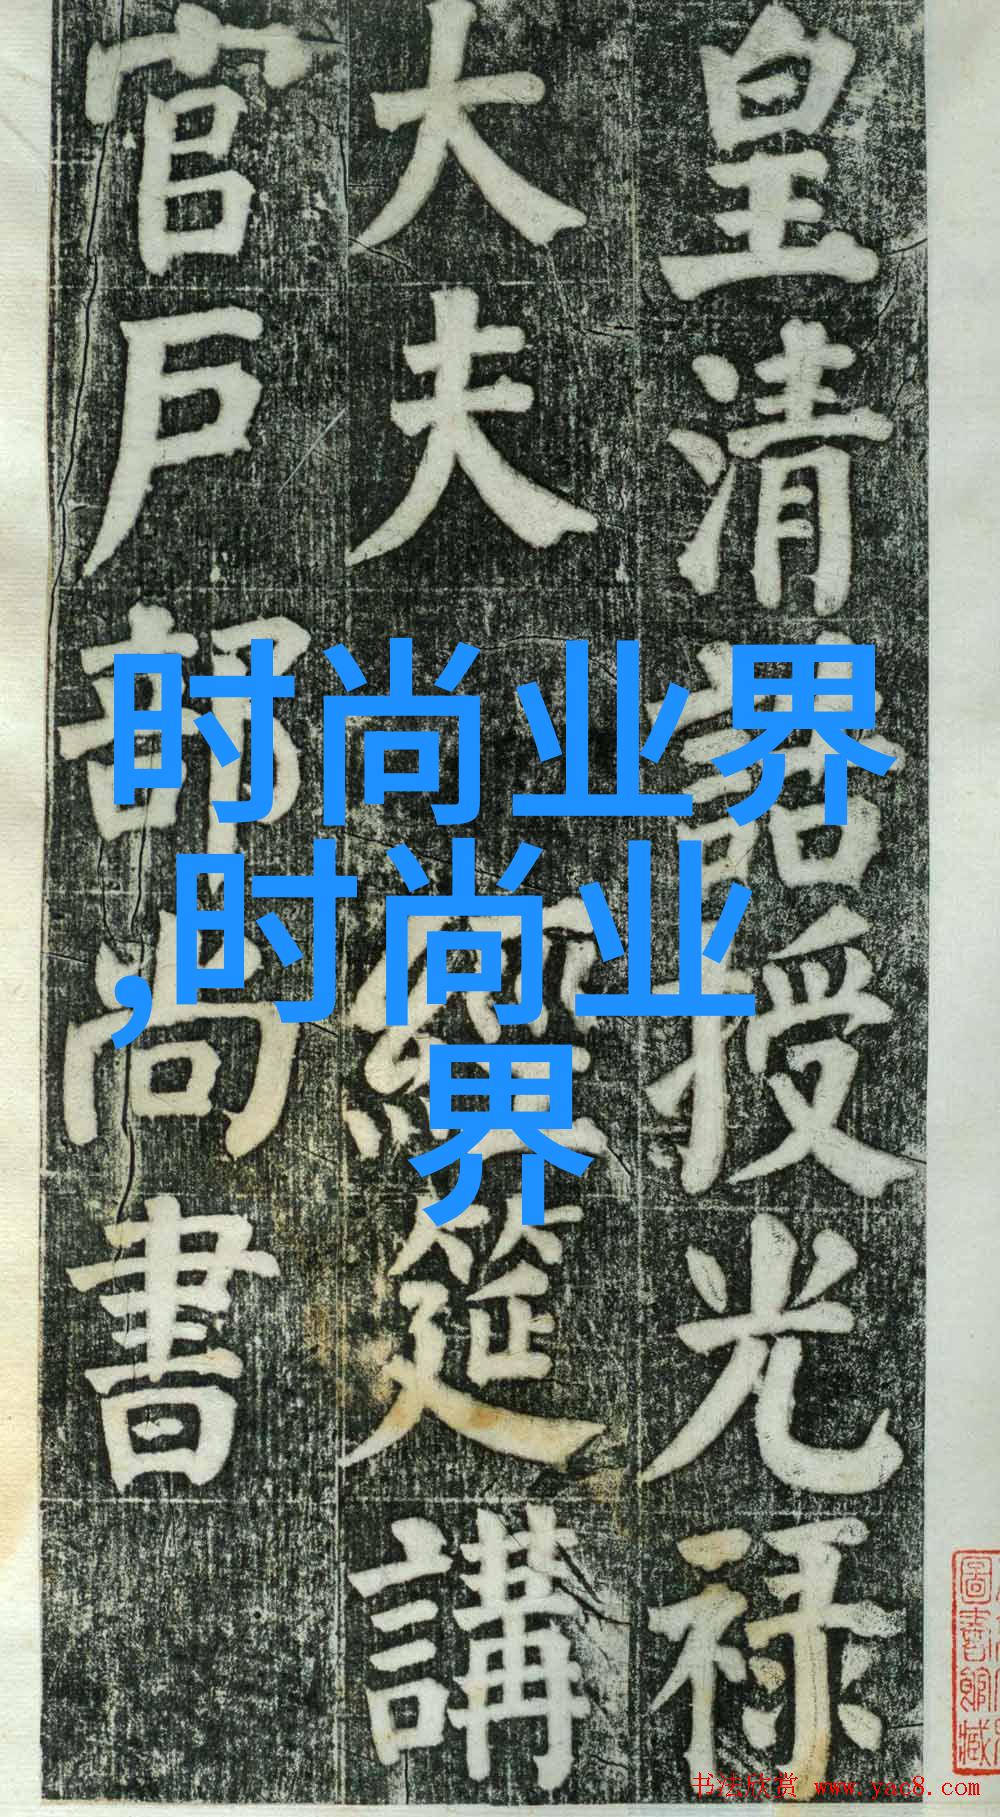 皇清誥授光禄
大夫經筵講
官戸部尚書
时尚业界
,时尚业
界
圖書館藏
书法欣赏 www.yac8.com